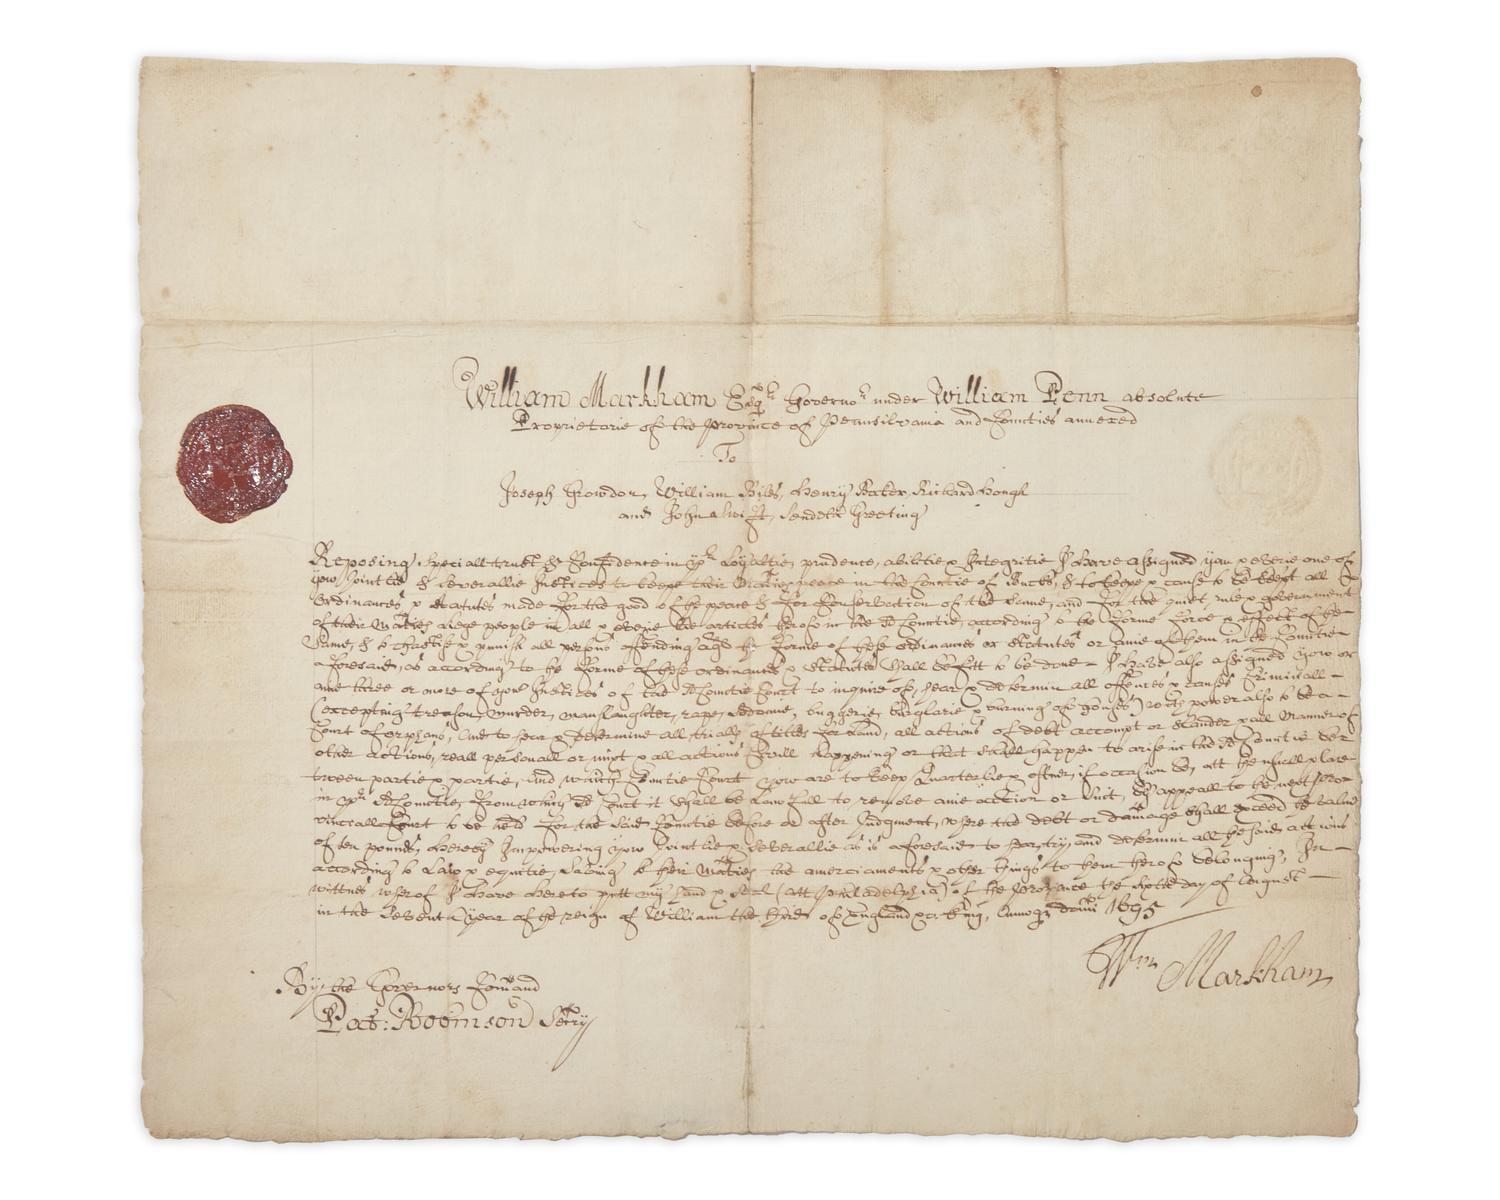 William Markham Esqr Governor under William Penn absolute
Proprietorie of the province of Pennsilvania and Counties annexed
To
Joseph Growdon, William Biles, Henry Baker, Richard Hough
and John Swift, Sendeth Greeting
Reposing speciall trust & Confidence in yor Loyaltie, prudence, abilitie & Integritie I have assigned you & everie one of
you Jointlie & severallie Justices to keepe their Maties peace in the Countie of Bucks, & to keepe & cause to be kept all
ordinances & statutes made for the good of the peace & for Conservation of the same, and for the quiet rule & government
of their Maties leige people in all & everie the articles therof in the sd Countie, according to the forme force & effect of the
same, & to chastise & punish all persons offending agt the forme of these ordinances or statutes or anie of them in the Countie
aforesaid, as according to the forme of these ordinances & statutes shall be fitt to be done – I have also assigned you or
anie three or more of you Justices of the sd Countie Court to inquire of, hear & determin all offences & causes Criminall –
(excepting treason, murder, manslaughter, rape, sodomie, buggerie, burglarie & burning of houses) with power also to be a –
Court of orphans, And to hear & determine all trialls of titles for Land, all actions of debt accompt or slander & all manner of
other actions, reall personall or mixt & all actions Civill happening or that shall happen to arise in the sd Countie bet
tween partie & partie, And which Countie Court you are to keep Quarterlie & oftner, if occasion be, att the usuall place
in yor sd Countie, from which sd Court it shall be Lawfull to remove anie action or suit, by appeall to the next pro-
vinciall Court to be held for the said Countie before or after Judgment, where the debt or damage shall exceed the value
of ten pounds, hereby Impowering you Jointlie & severallie as is aforesaid to hear, try and determin all the said actions
according to Law & equitie, saving to their Maties the amerciaments & other things to them therof belonging, In –
wittnes wherof I have hereto putt my hand & seal (att Philadelphia) of the province the day of August –
in the Seventh year of the reign of William the third of England &c. King, Annoq domi 1695
Wm Markham
By the Governors Comand
Pat: Robinson Secry